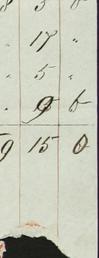 17 "
" 5 "
" 9 6
9 15 0